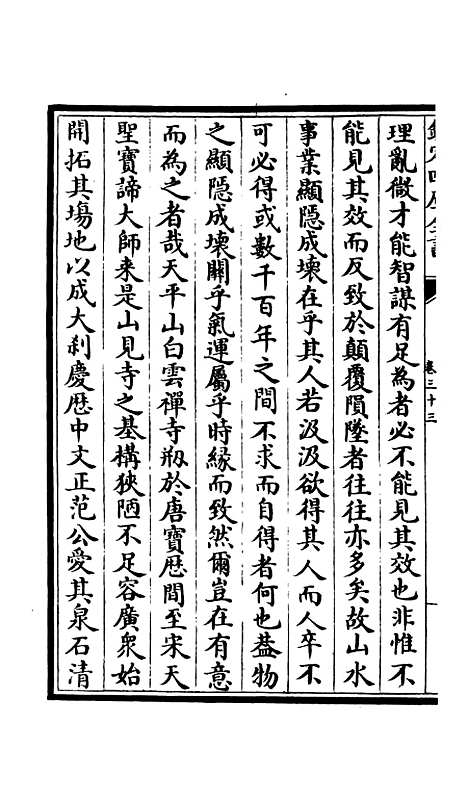 欽定四庫全書
卷三十三
理亂微才能智謀有足為者必不能見其效也非惟不
能見其效而反致於顛覆隕墜者往往亦多矣故山水
事業顯隠成壊在乎其人若汲汲欲得其人而人卒不
可必得或數千百年之間不求而自得者何也葢物
之顯隠成壊闗乎氣運屬乎時縁而致然爾豈在有意
而為之者哉天平山白雲禪寺剏於唐寳厯間至宋天
聖寳諦大師来是山見寺之基構狹陋不足容廣衆始
開拓其塲地以成大刹慶厯中文正范公愛其泉石清